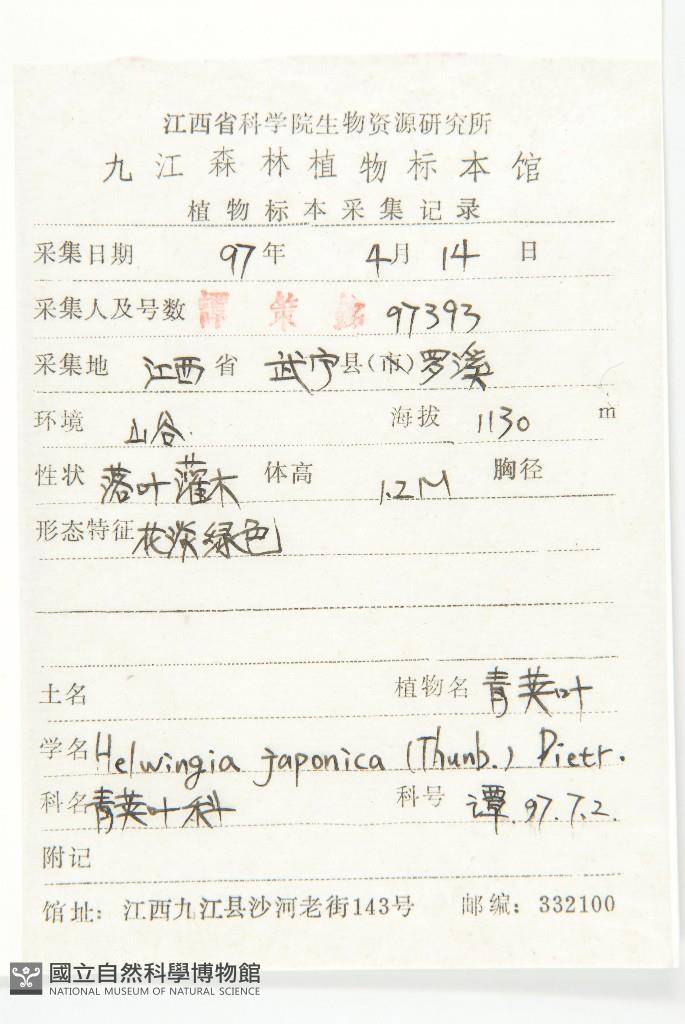 江西省科学院生物资源研究所
九江森林植物标本馆
植物标本采集记录
采集日期 97年 4月 14 日
采集人及号数 譚策銘 97393
采集地 江西省 武宁县(市)罗溪
环境 山谷. 海拔 1130 m
性状 落叶灌木 体高 1.2M 胸径
形态特征 花淡绿色
土名 植物名 青荚叶
学名 Helwingia japonica (Thunb.) Dietr.
科名 青荚叶科 科号 谭.97.7.2.
附记
馆址: 江西九江县沙河老街143号 邮编: 332100
國立自然科學博物館
NATIONAL MUSEUM OF NATURAL SCIENCE